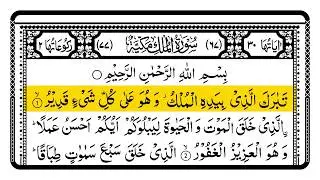 اٰيَاتُهَا ٣٠ (٦٧) سُوْرَةُ الْمُلْكِ مَكِّيَّةٌ (٧٧) رُكُوْعَاتُهَا ٢
بِسْمِ اللّٰهِ الرَّحْمٰنِ الرَّحِيْمِ
تَبٰرَكَ الَّذِىْ بِيَدِهِ الْمُلْكُ ۫ وَهُوَ عَلٰى كُلِّ شَىْءٍ قَدِيْرُ ۙ﴿۱﴾
اۨلَّذِىْ خَلَقَ الْمَوْتَ وَ الْحَيٰوةَ لِيَبْلُوَكُمْ اَيُّكُمْ اَحْسَنُ عَمَلًا ؕ
وَ هُوَ الْعَزِيْزُ الْغَفُوْرُ ۙ﴿۲﴾ الَّذِىْ خَلَقَ سَبْعَ سَمٰوٰتٍ طِبَاقًا ؕ